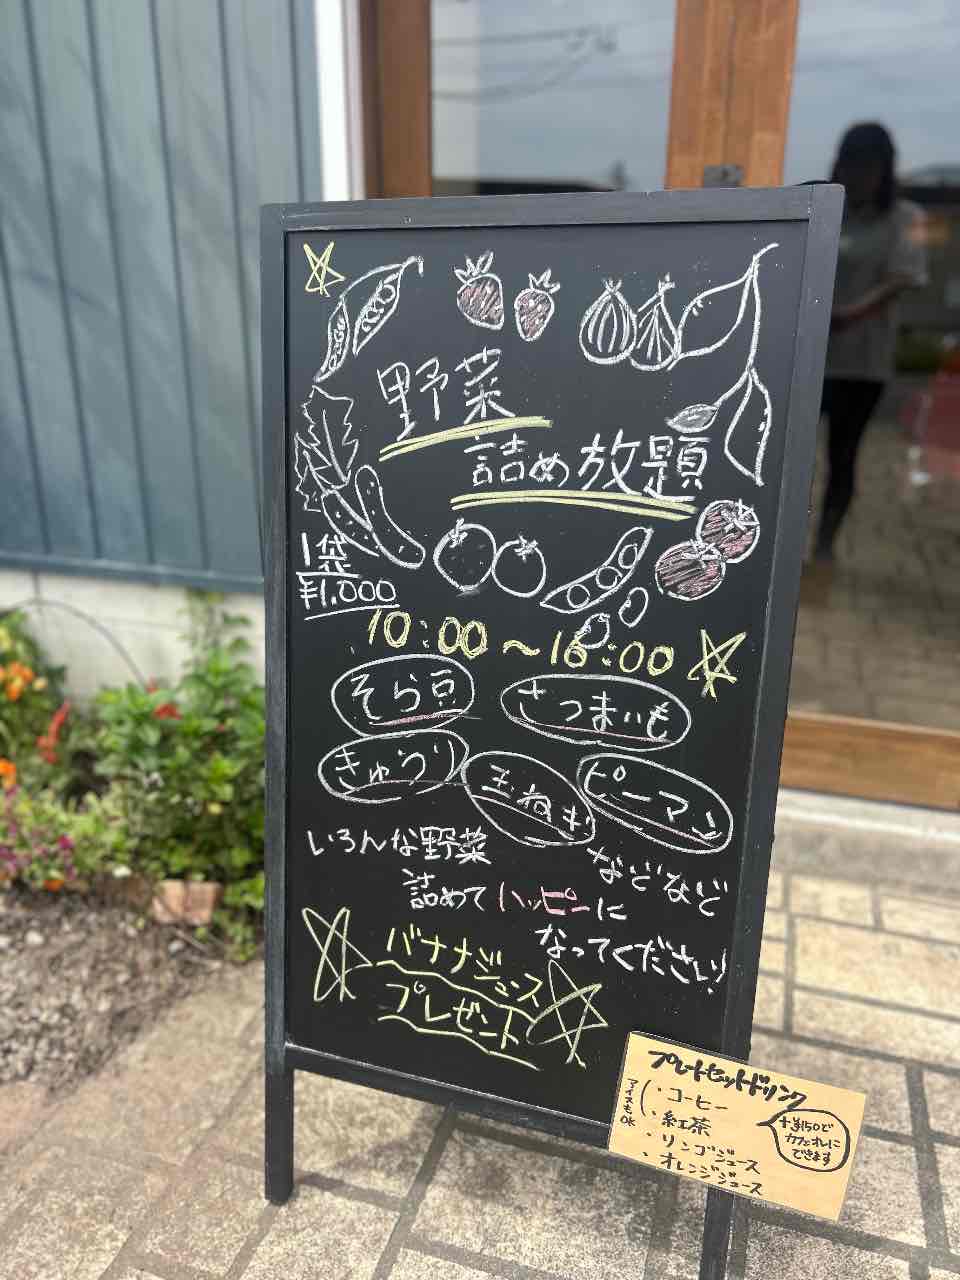 野菜
詰め放題
1袋
¥1,000
10:00～16:00
そら豆 さつまいも
きゅうり 玉ねぎ ピーマン
などなど
いろんな野菜
詰めてハッピーに
なってください!
バナナジュース
プレゼント
プレートセットドリンク
・コーヒー
・紅茶
アイスもOK
・リンゴジュース
・オレンジジュース
+¥150で
カフェオレに
できます